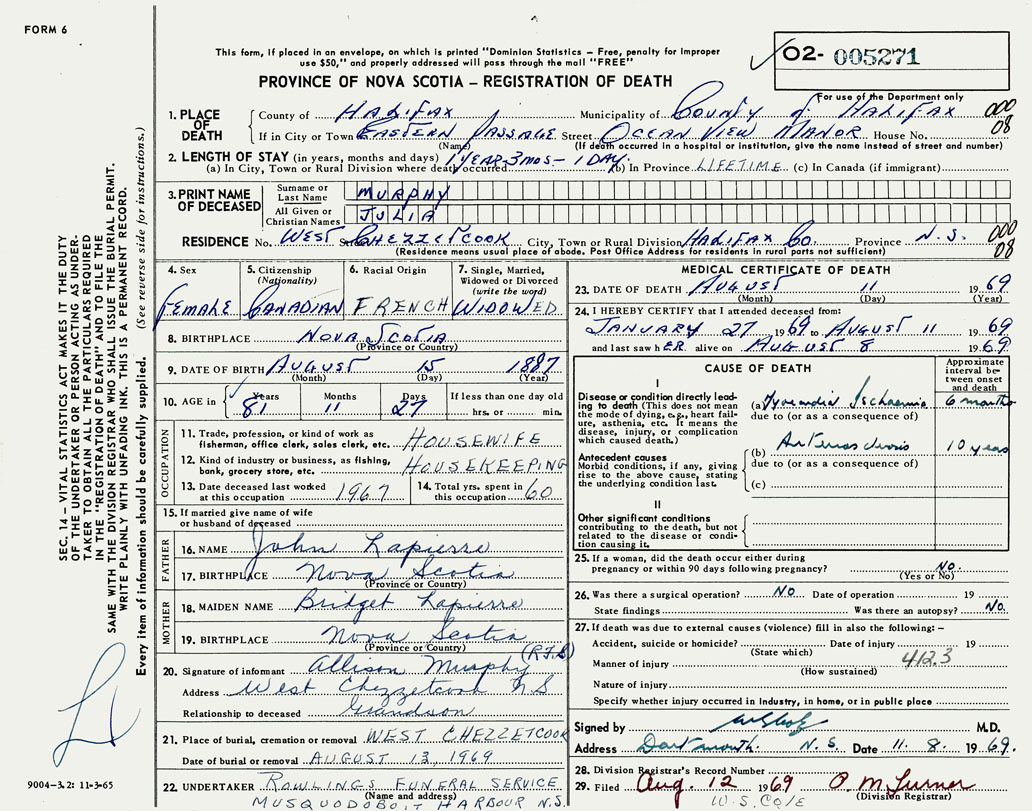 FORM 6
This form, if placed in an envelope, on which is printed "Dominion Statistics – Free, penalty for improper
use $50," and properly addressed will pass through the mail "FREE"
PROVINCE OF NOVA SCOTIA – REGISTRATION OF DEATH
02- 005271
For use of the Department only
1. PLACE OF DEATH
County of HALIFAX Municipality of COUNTY of HALIFAX 000
If in City or Town EASTERN PASSAGE Street OCEAN VIEW MANOR House No. 08
(Name) (If death occurred in a hospital or institution, give the name instead of street and number)
2. LENGTH OF STAY (in years, months and days) 1 YEAR-3 MOS- 1 DAY.
(a) In City, Town or Rural Division where death occurred (b) In Province LIFETIME (c) In Canada (if immigrant)
3. PRINT NAME OF DECEASED
Surname or Last Name MURPHY
All Given or Christian Names JULIA
RESIDENCE No. WEST St. CHEZZETCOOK City, Town or Rural Division HALIFAX Co. Province N.S. 000
(Residence means usual place of abode. Post Office Address for residents in rural parts not sufficient) 08
4. Sex FEMALE
5. Citizenship (Nationality) CANADIAN
6. Racial Origin FRENCH
7. Single, Married, Widowed or Divorced (write the word) WIDOWED
8. BIRTHPLACE NOVA SCOTIA
(Province or Country)
9. DATE OF BIRTH AUGUST 15 1887
(Month) (Day) (Year)
10. AGE in Years 81 Months 11 Days 27 If less than one day old
hrs. or min.
OCCUPATION
11. Trade, profession, or kind of work as fisherman, office clerk, sales clerk, etc. HOUSEWIFE
12. Kind of industry or business, as fishing, bank, grocery store, etc. HOUSEKEEPING
13. Date deceased last worked at this occupation 1967
14. Total yrs. spent in this occupation 60
15. If married give name of wife
or husband of deceased
FATHER
16. NAME John Lapierre
17. BIRTHPLACE Nova Scotia
(Province or Country)
MOTHER
18. MAIDEN NAME Bridget Lapierre
19. BIRTHPLACE Nova Scotia
(Province or Country)
20. Signature of informant Allison Murphy
Address West Chezzetcook N S
Relationship to deceased Grandson
21. Place of burial, cremation or removal WEST CHEZZETCOOK
Date of burial or removal AUGUST 13, 1969
22. UNDERTAKER ROWLINGS FUNERAL SERVICE
(Name and address)
MUSQUODOBOIT HARBOUR N.S.
MEDICAL CERTIFICATE OF DEATH
23. DATE OF DEATH AUGUST 11 1969
(Month) (Day) (Year)
24. I HEREBY CERTIFY that I attended deceased from:
JANUARY 27 1969 to AUGUST 11 1969
and last saw hER alive on AUGUST 8 1969
CAUSE OF DEATH
Approximate interval between onset and death
I
Disease or condition directly leading to death (This does not mean the mode of dying, e.g., heart failure, asthenia, etc. It means the disease, injury, or complication which caused death.)
(a) Myocardia Ischaemia 6 months
due to (or as a consequence of)
(b) 10 years
due to (or as a consequence of)
(c)
Antecedent causes
Morbid conditions, if any, giving rise to the above cause, stating the underlying condition last.
II
Other significant conditions
contributing to the death, but not related to the disease or condition causing it.
25. If a woman, did the death occur either during
pregnancy or within 90 days following pregnancy? NO.
(Yes or No)
26. Was there a surgical operation? NO Date of operation 19
State findings Was there an autopsy? NO.
27. If death was due to external causes (violence) fill in also the following: –
Accident, suicide or homicide? Date of injury 19
(State which) 412.3
Manner of injury
(How sustained)
Nature of injury
Specify whether injury occurred in industry, in home, or in public place
Signed by M.D.
Address Dartmouth. N.S. Date 11. 8. 1969.
28. Division Registrar's Record Number
29. Filed Aug. 12 1969 P. M. Turner
(Division Registrar)
W.S. Cole
SEC. 14 – VITAL STATISTICS ACT MAKES IT THE DUTY
OF THE UNDERTAKER OR PERSON ACTING AS UNDER-
TAKER TO OBTAIN ALL THE PARTICULARS REQUIRED
IN THE "REGISTRATION OF DEATH" AND TO FILE THE
SAME WITH THE DIVISION REGISTRAR WHO SHALL ISSUE THE BURIAL PERMIT.
WRITE PLAINLY WITH UNFADING INK. THIS IS A PERMANENT RECORD.
Every item of information should be carefully supplied. (See reverse side for instructions.)
9004-3.2: 11-3-65